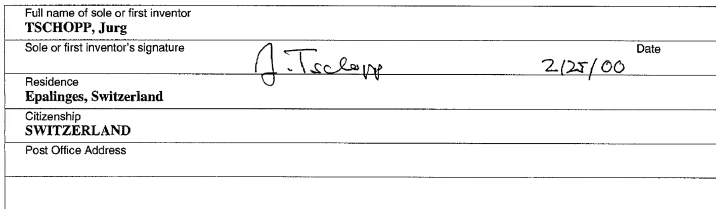 Full name of sole or first inventor
TSCHOPP, Jurg
Sole or first inventor's signature
Date
J. Tschopp
2/25/00
Residence
Epalinges, Switzerland
Citizenship
SWITZERLAND
Post Office Address